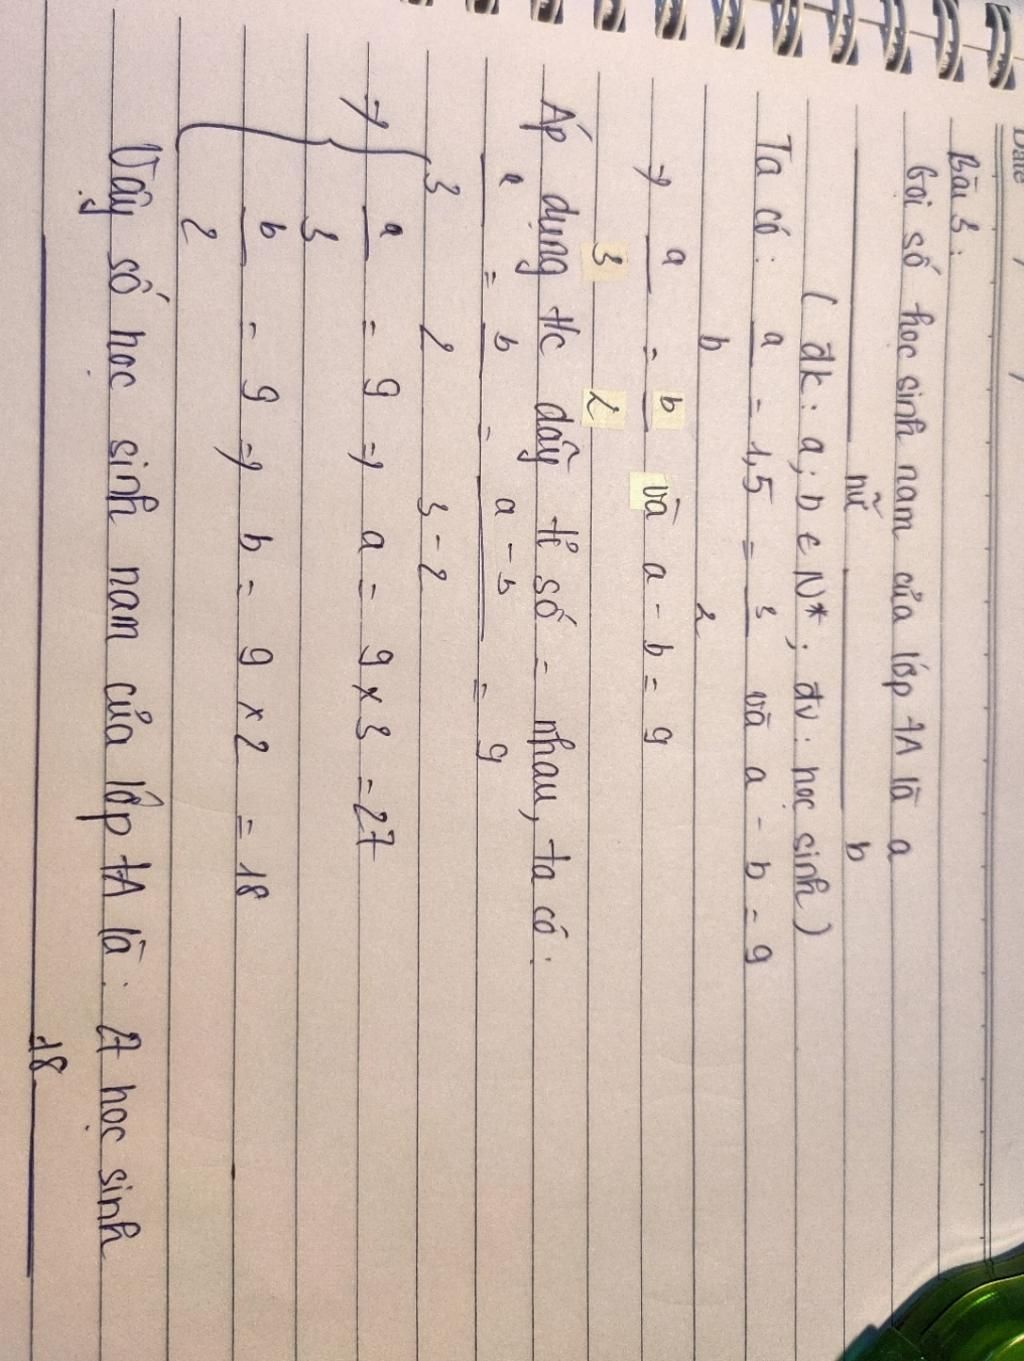 Date / /
Bài 3:
Gọi số học sinh nam của lớp 7A là a
nữ b
( đk: a; b ∈ N*; đv: học sinh)
Ta có: a/b = 1,5 = 3/2 và a - b = 9
=> a/3 = b/2 và a - b = 9
Áp dụng t/c dãy tỉ số = nhau, ta có:
a/3 = b/2 = a - b/3 - 2 = 9
=> { a/3 = 9 => a = 9 × 3 = 27
b/2 = 9 => b = 9 × 2 = 18
Vậy số học sinh nam của lớp 7A là: 27 học sinh
18